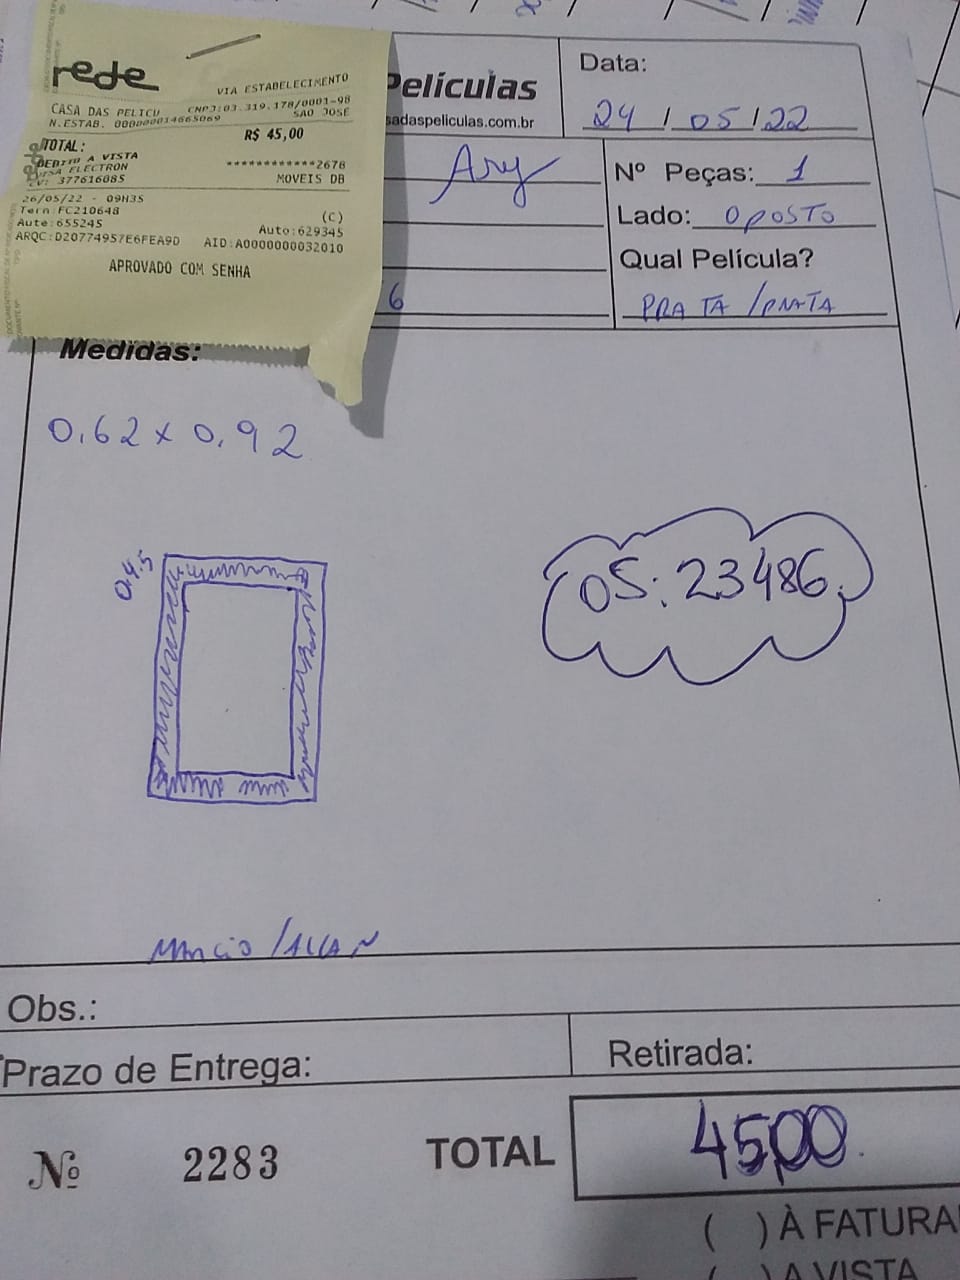 rede
VIA ESTABELECIMENTO
CASA DAS PELICU CNPJ:03.319.178/0001-98
N.ESTAB. 000000014665069 SAO JOSE
R$ 45,00
TOTAL:
DEBITO A VISTA
VISA ELECTRON ************2678
CV: 377616085 MOVEIS DB
26/05/22 - 09H35
Term:FC210648 (C)
Aute:655245 Auto:629345
ARQC:D20774957E6FEA9D AID:A0000000032010
APROVADO COM SENHA
Películas
sadaspeliculas.com.br
Data:
24/05/22
Ary
Nº Peças: 1
Lado: OPOSTO
Qual Película?
6
PRATA/PRATA
Medidas:
0,62 x 0,92
0,45
OS: 23486
MARCIO/ALLAN
Obs.:
Prazo de Entrega:
Retirada:
Nº 2283 TOTAL 45,00
( ) À FATURA
( ) A VISTA